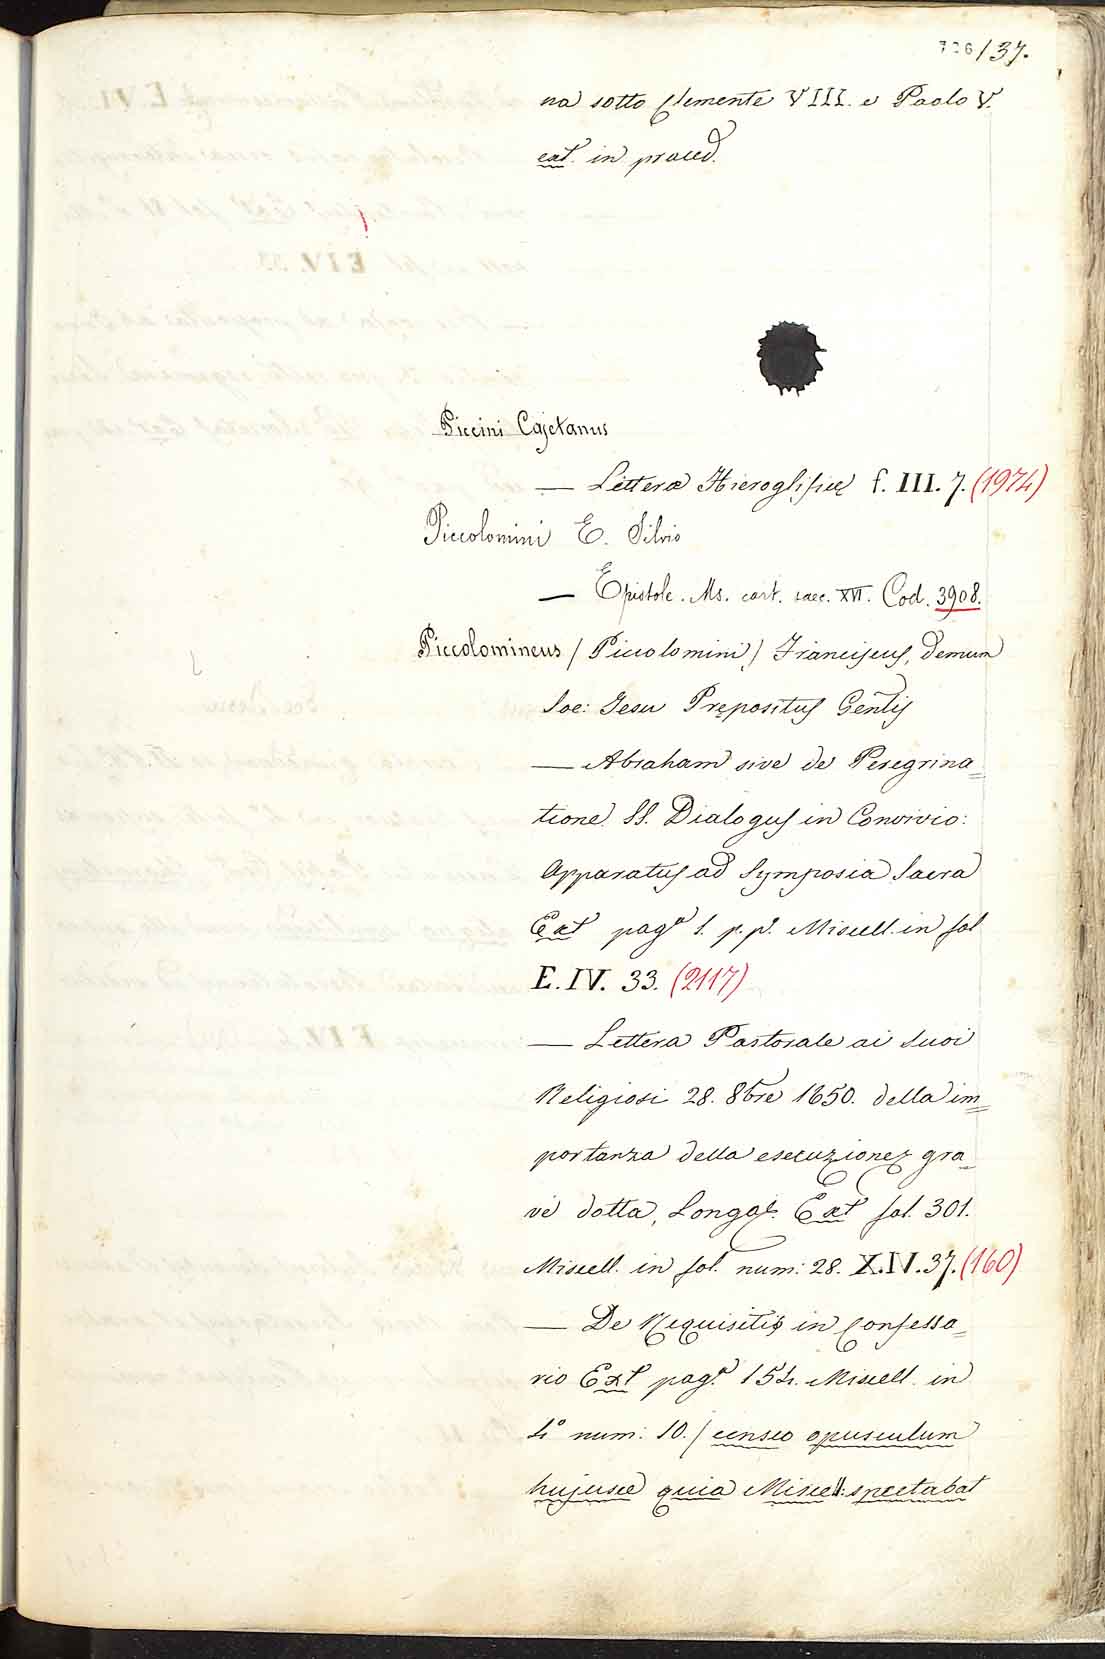 726/37.
na sotto Clemente VIII. e Paolo V.
ext. in praeced.
Piccini Cajetanus
— Lettera Hieroglificę f. III. 7. (1974)
Piccolomini E. Silvio
— Epistole. Ms. cart. saec. XVI. Cod. 3908.
Piccolomineus / Piccolomini / Franciscus, demum
Soc: Jesu Prępositus Genlis
— Abraham sive de Peregrina=
tione SS. Dialogus in Convivio:
Apparatus ad Symposia Sacra
Ext paga 1. p. p. Miscell. in fol
E. IV. 33. (2117)
— Lettera Pastorale ai suoi
Religiosi 28. 8bre 1650. della im=
portanza della esecuzione gra=
ve dotta, Longa. Ext fol. 301.
Miscell. in fol. num: 28. X.IV.37. (160)
— De Requisitis in Confessa=
rio Ext paga 154. Miscell. in
4° num: 10. / censeo opusculum
hujusce quia Miscell: spectabat